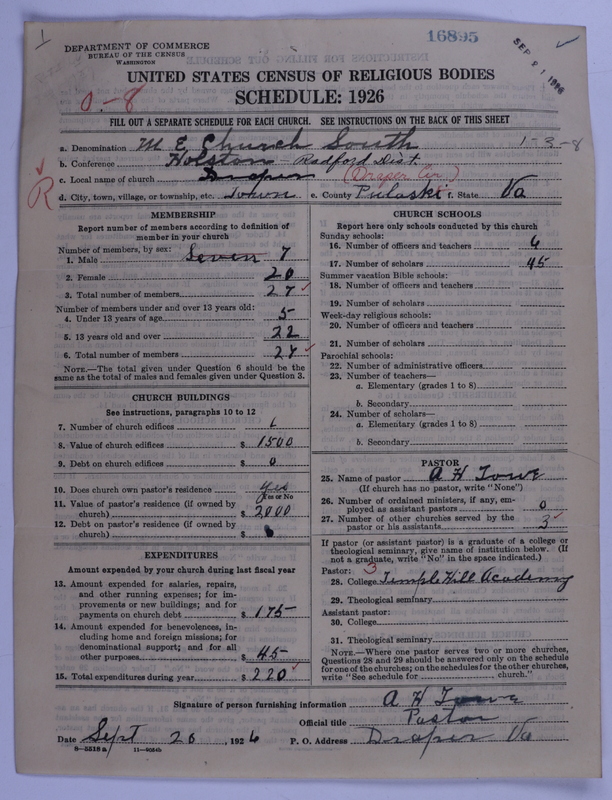 1
16895
SEP 21 1926
DEPARTMENT OF COMMERCE
BUREAU OF THE CENSUS
WASHINGTON
UNITED STATES CENSUS OF RELIGIOUS BODIES
SCHEDULE: 1926
0-8
FILL OUT A SEPARATE SCHEDULE FOR EACH CHURCH. SEE INSTRUCTIONS ON THE BACK OF THIS SHEET
a. Denomination M E Church South 1-3-8
b. Conference Holston - Radford Dist.
c. Local name of church Draper (Draper Cir.)
R
d. City, town, village, or township, etc. Town e. County Pulaski f. State Va
MEMBERSHIP
Report number of members according to definition of
member in your church
Number of members, by sex:
1. Male Seven 7
2. Female 20
3. Total number of members 27
Number of members under and over 13 years old:
4. Under 13 years of age 5
5. 13 years old and over 22
6. Total number of members 27
NOTE.—The total given under Question 6 should be
same as the total of males and females given under Question 3.
CHURCH BUILDINGS
See instructions, paragraphs 10 to 12
7. Number of church edifices 1
8. Value of church edifices $ 1500
9. Debt on church edifices $ 0
10. Does church own pastor's residence yes
Yes or No
11. Value of pastor's residence (if owned by
church) $ 2000
12. Debt on pastor's residence (if owned by
church) $
EXPENDITURES
Amount expended by your church during last fiscal year
13. Amount expended for salaries, repairs,
and other running expenses; for im-
provements or new buildings; and for
payments on church debt $ 175
14. Amount expended for benevolences, in-
cluding home and foreign missions; for
denominational support; and for all
other purposes $ 45
15. Total expenditures during year $ 220
CHURCH SCHOOLS
Report here only schools conducted by this church
Sunday schools:
16. Number of officers and teachers 6
17. Number of scholars 45
Summer vacation Bible schools:
18. Number of officers and teachers
19. Number of scholars
Week-day religious schools:
20. Number of officers and teachers
21. Number of scholars
Parochial schools:
22. Number of administrative officers
23. Number of teachers—
a. Elementary (grades 1 to 8)
b. Secondary
24. Number of scholars—
a. Elementary (grades 1 to 8)
b. Secondary
PASTOR
25. Name of pastor A H Towe
(If church has no pastor, write "None")
26. Number of ordained ministers, if any, em-
ployed as assistant pastors 0
27. Number of other churches served by the
pastor or his assistants 3
If pastor (or assistant pastor) is a graduate of a college or
theological seminary, give name of institution below. (If
not a graduate, write "No" in the space indicated.)
Pastor: 3
28. College Temple Hill Academy
29. Theological seminary
Assistant pastor:
30. College
31. Theological seminary
NOTE.—Where one pastor serves two or more churches,
Questions 28 and 29 should be answered only on the schedule
for one of the churches; on the schedules for the other churches,
write "See schedule for church."
Signature of person furnishing information A H Towe
Official title Pastor
Date Sept 20, 1926 P. O. Address Draper Va
8-5518 a